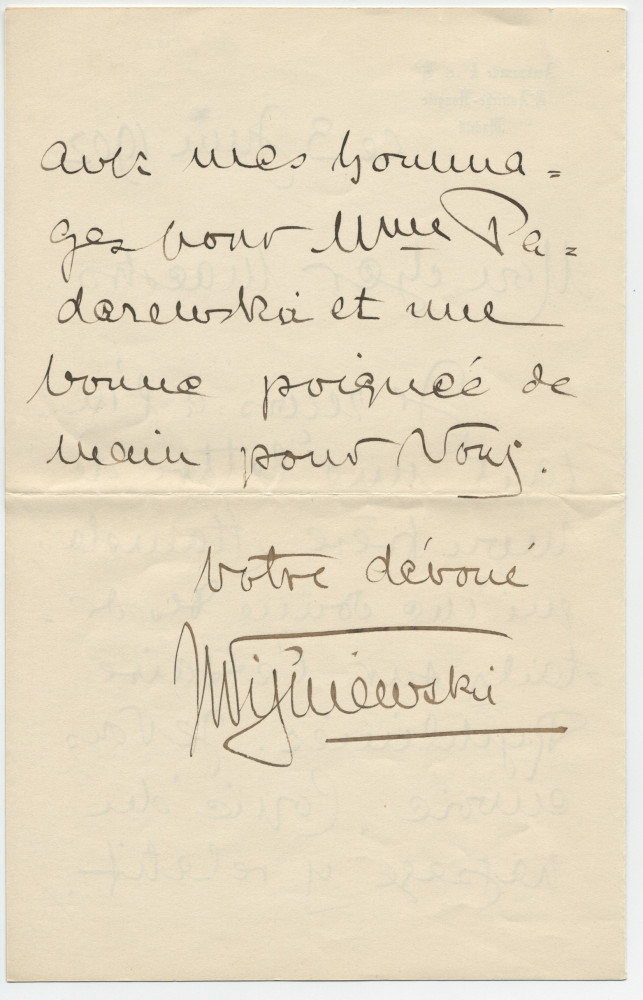 avec mes homma=
ges pour Mme Pa=
darewska et une
bonne poignée de
main pour Vous.
votre dévoué
Wiśniewski